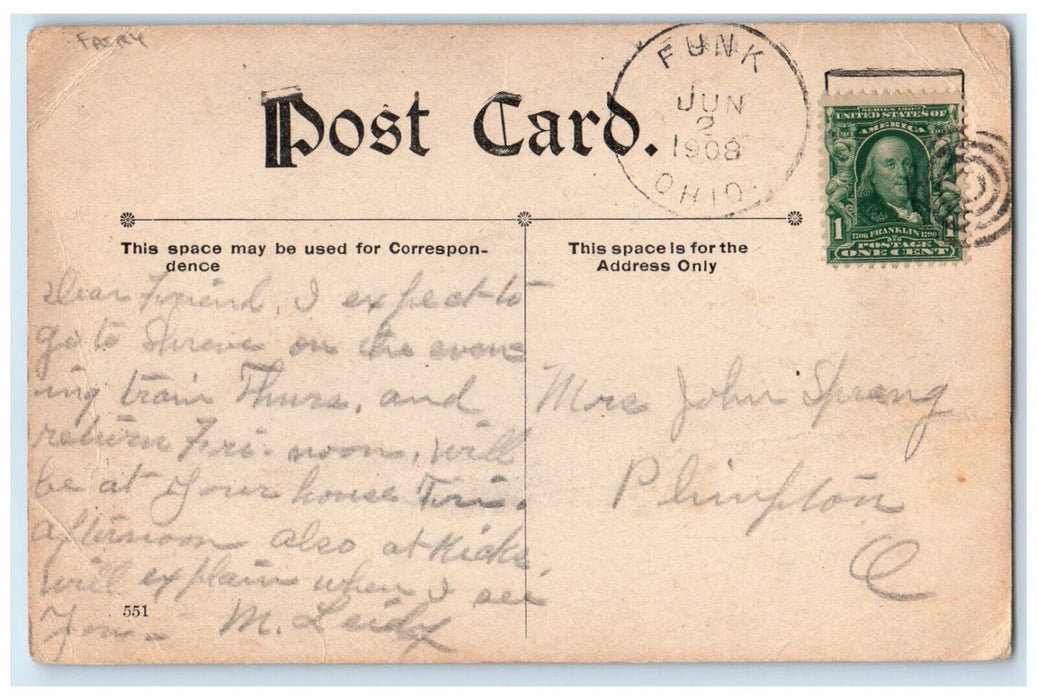 FAIRY
FUNK
JUN
2
1908
OHIO.
Post Card.
SERIES 1902
UNITED STATES OF
AMERICA
1706 FRANKLIN 1790
1
POSTAGE
ONE CENT
This space may be used for Correspon-
dence
This space is for the
Address Only
Dear Friend, I expect to
go to Shreve on the even=
ing train Thurs, and
return Fri. noon, will
be at your house Fri.
afternoon also at
will explain when I see
you. M. Leidy
551
Mrs John Sprang
Plimpton
O